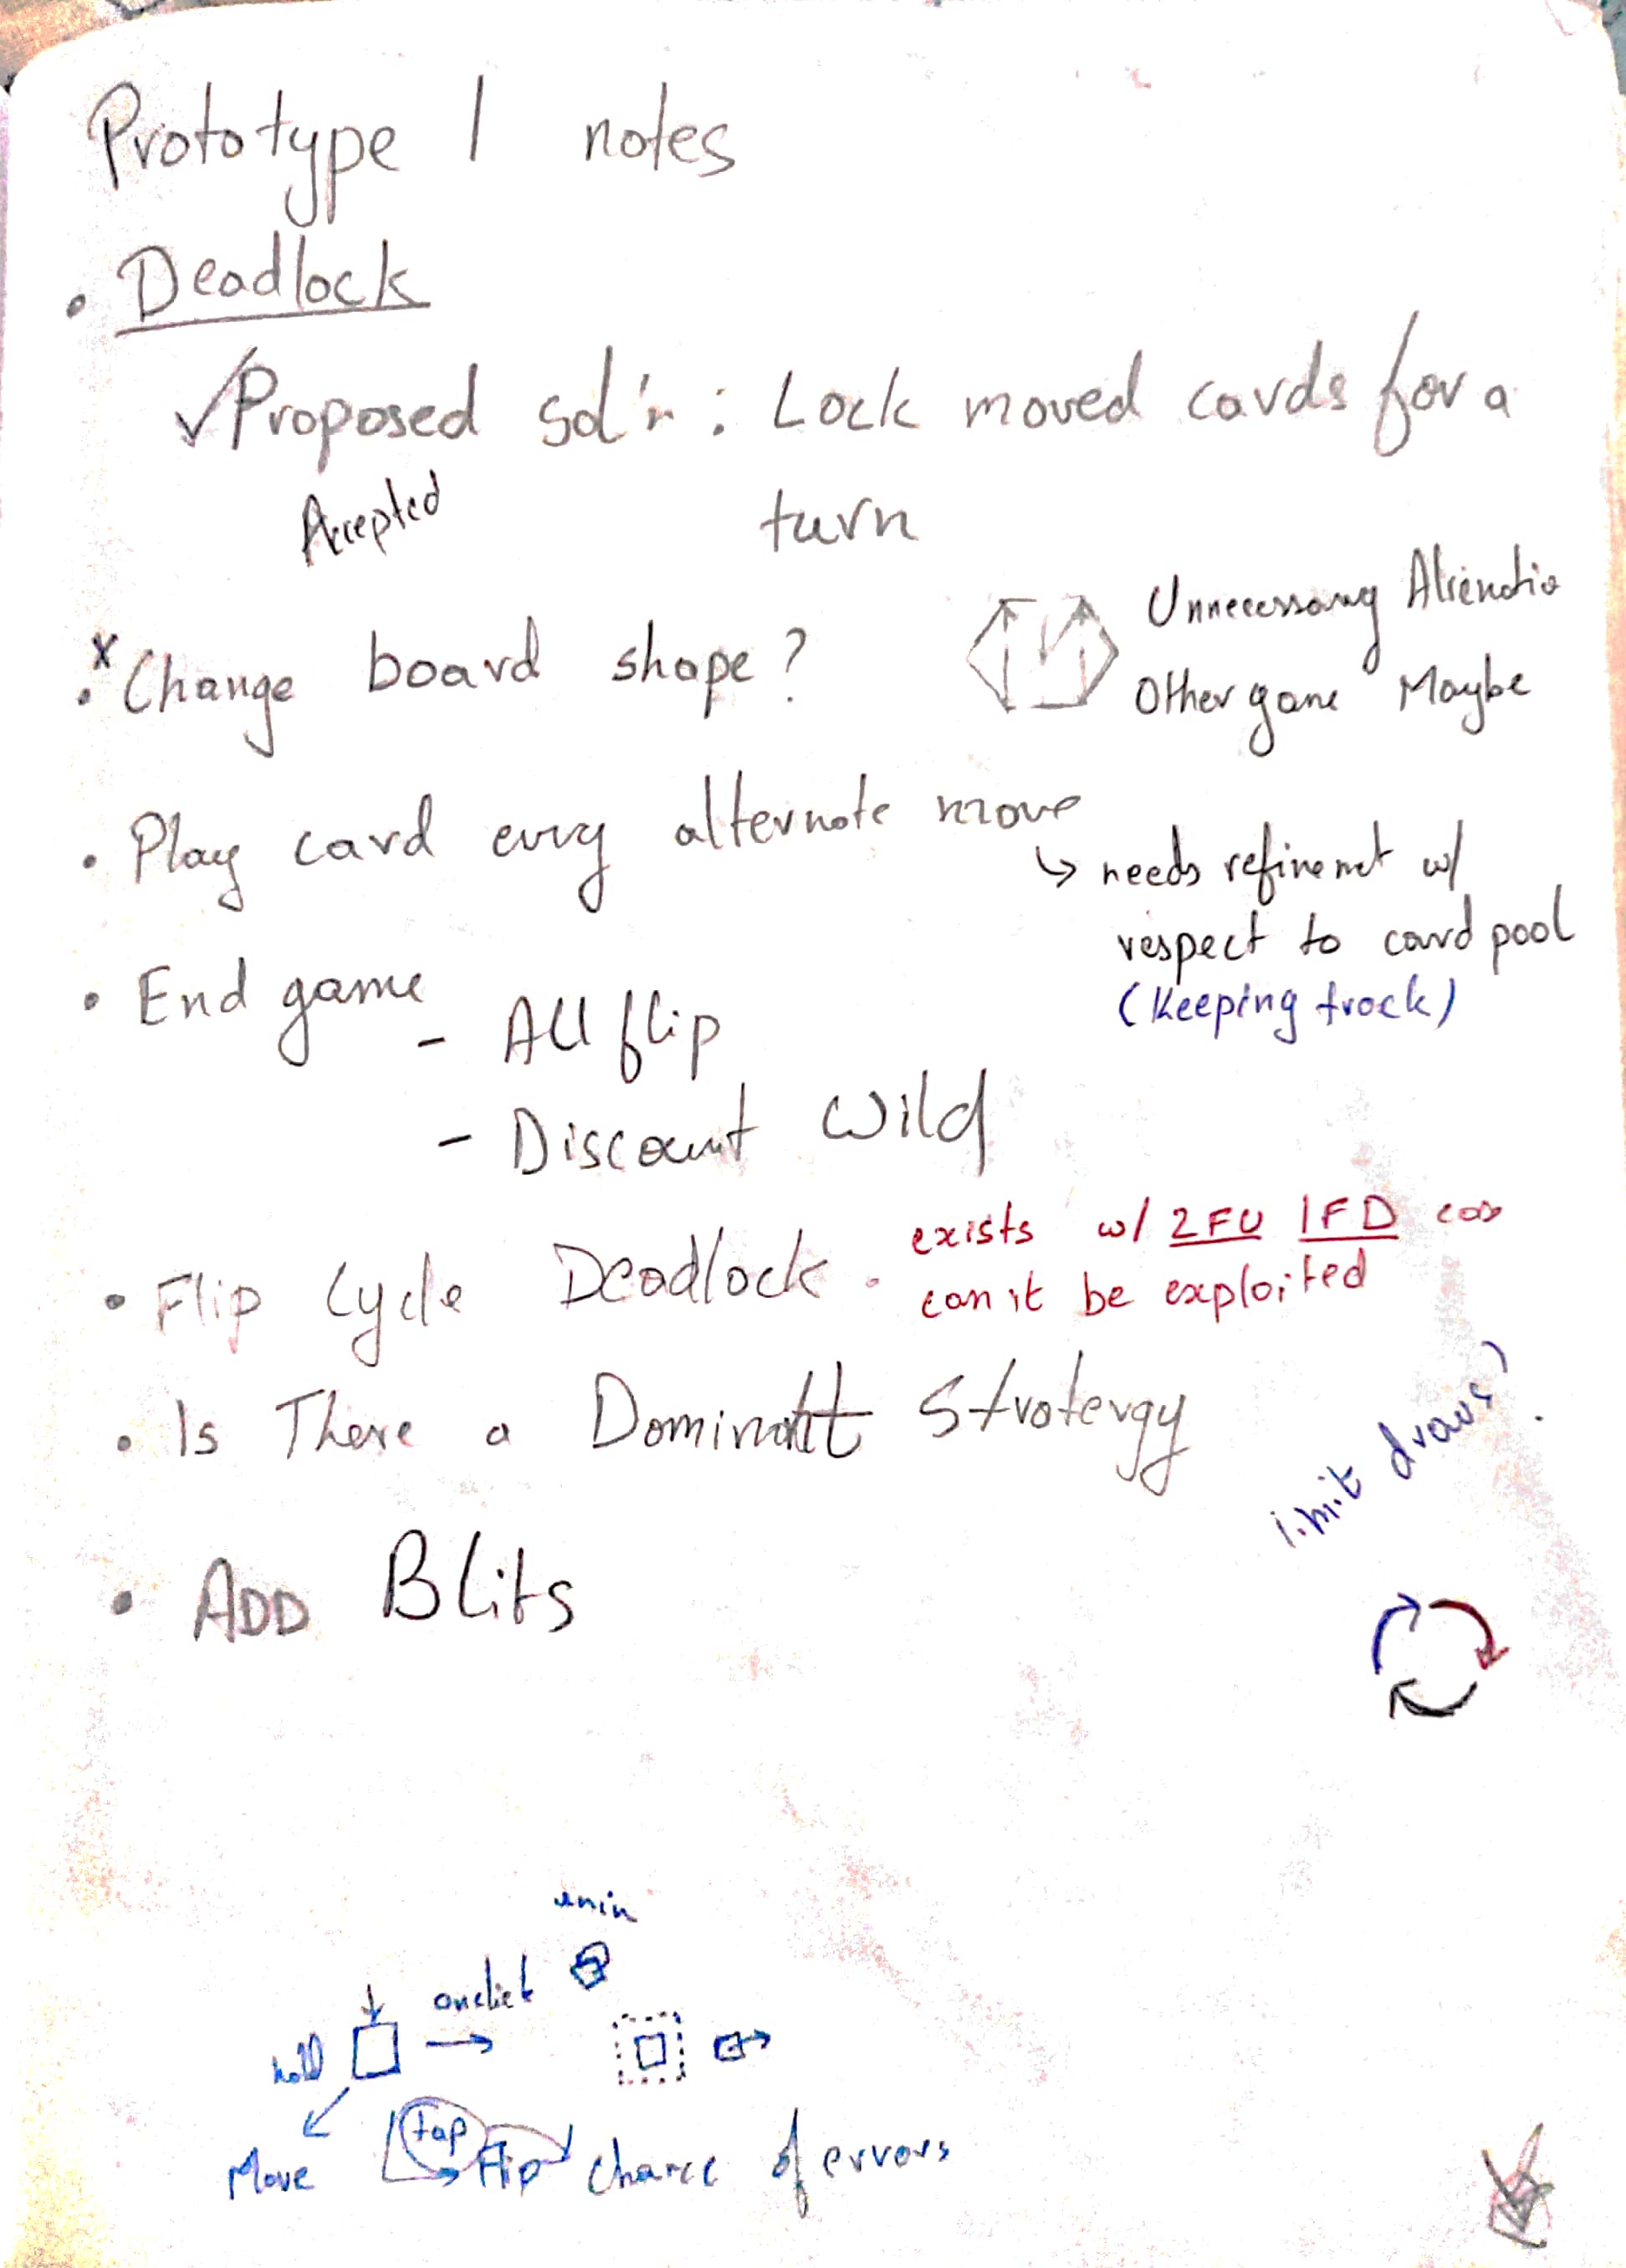 Prototype 1 notes
• Deadlock
✓ Proposed sol'n : Lock moved cards for a
turn
Accepted
x
• Change board shape?
Unnecessary Alienatio
Other game Maybe
• Play card evry alternate move
↳ needs refinemet w/
respect to card pool
(Keeping track)
• End game
- All flip
- Discount Wild
• Flip Cycle Deadlock .
exists w/ 2FU 1FD
can it be exploited
• Is There a Dominatt Stratergy
limit draws?
• ADD Blits
onclick
hold
Move
tap
flip
Chance of errors